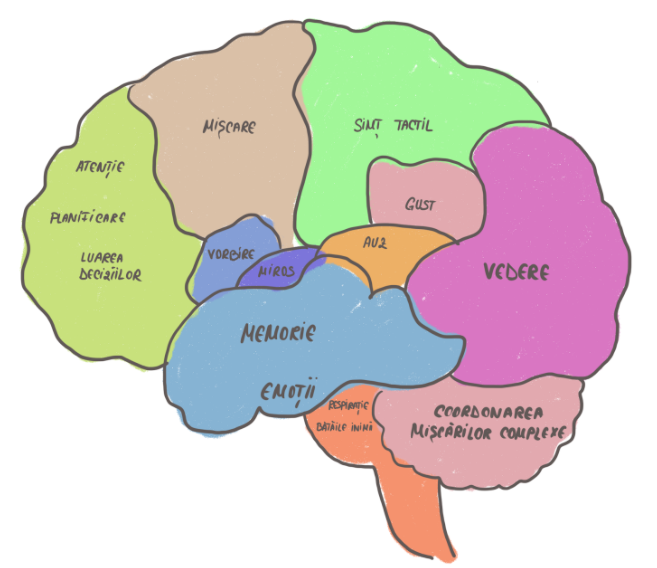 MIȘCARE
SIMȚ TACTIL
ATENȚIE
PLANIFICARE
LUAREA
DECIZIILOR
GUST
AUZ
VORBIRE
MIROS
VEDERE
MEMORIE
EMOȚII
RESPIRAȚIE
BĂTĂILE INIMII
COORDONAREA
MIȘCĂRILOR COMPLEXE